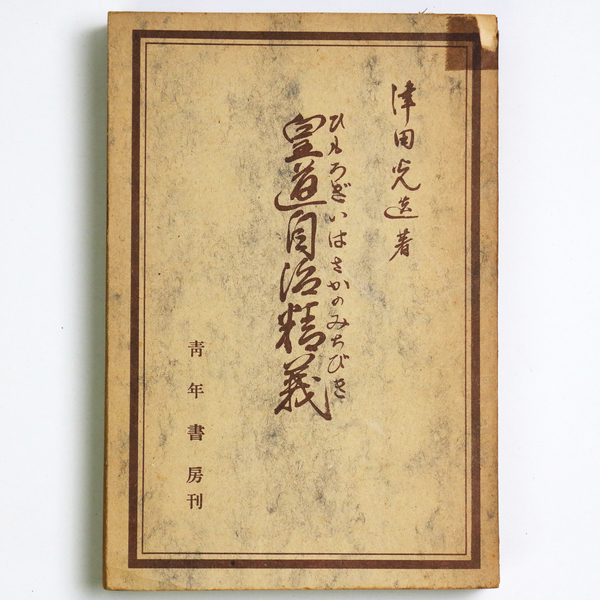 津田光造著
ひもろぎいはさかのみちびき
皇道自治精義
青年書房刊